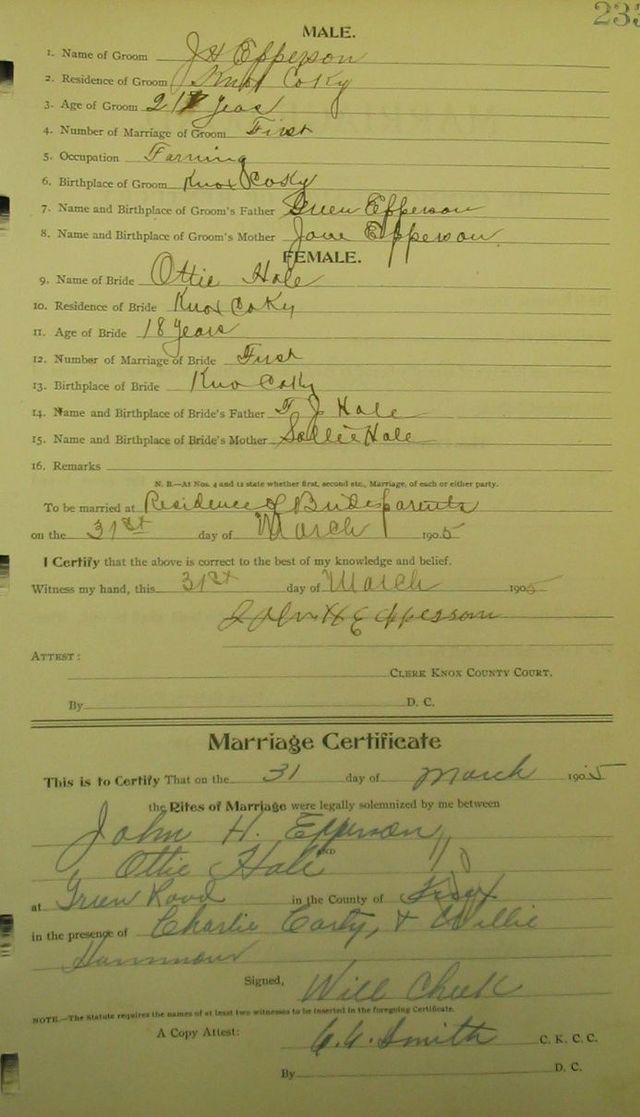 233
MALE.
1. Name of Groom J H Epperson
2. Residence of Groom Knox Co Ky
3. Age of Groom 21 Years
4. Number of Marriage of Groom First
5. Occupation Farming
6. Birthplace of Groom Knox Co Ky
7. Name and Birthplace of Groom's Father Green Epperson
8. Name and Birthplace of Groom's Mother Jane Epperson
FEMALE.
9. Name of Bride Ottie Hale
10. Residence of Bride Knox Co Ky
11. Age of Bride 18 Years
12. Number of Marriage of Bride First
13. Birthplace of Bride Knox Co Ky
14. Name and Birthplace of Bride's Father T J Hale
15. Name and Birthplace of Bride's Mother Sallie Hale
16. Remarks
N. B.—At Nos. 4 and 12 state whether first, second etc., Marriage, of each or either party.
To be married at Residence of Brides parents
on the 31st day of March 1905
I Certify that the above is correct to the best of my knowledge and belief.
Witness my hand, this 31st day of March 1905
John H Epperson
ATTEST:
CLERK KNOX COUNTY COURT.
By D. C.
Marriage Certificate
This is to Certify That on the 31 day of March 1905
the Rites of Marriage were legally solemnized by me between
John H. Epperson
AND
Ottie Hale
at Green Road in the County of Knox
in the presence of Charlie Carty, & Willie
Hammons
Signed, Will Cheek
NOTE.—The Statute requires the names of at least two witnesses to be inserted in the foregoing Certificate.
A Copy Attest: Smith C. K. C. C.
By D. C.